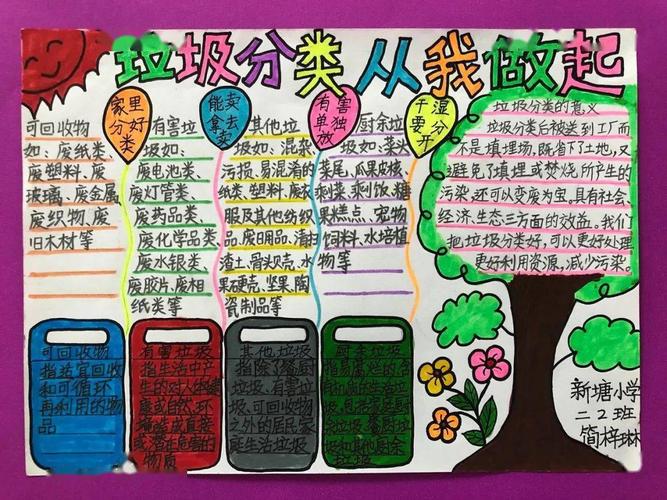 垃圾分类从我做起
家里
分好
类
能卖
拿去
卖
有害
单独
放
干湿
要分
开
可回收物
如、废纸类、
废塑料、废
玻璃、废金属、
废织物、废
旧木材等
有害垃
圾如、
废电池类、
废灯管类、
废药品类、
废化学品类、
废水银类、
废胶片、废相
纸类等
其他垃
圾如、混杂、
污损、易混淆的
纸类、塑料、废衣
服及其他纺织
品、废日用品、清扫
渣土、骨头贝壳、水
果硬壳、坚果、陶
瓷制品等
厨余垃
圾如、菜头
菜尾、瓜果皮核、
剩菜、剩饭、糖
果糕点、宠物
饲料、水培植
物等
垃圾分类的意义
垃圾分类后被送到工厂而
不是填埋场,既省下了土地,又
避免了填埋或焚烧所产生的
污染,还可以变废为宝。具有社会、
经济、生态三方面的效益。我们
把垃圾分类好,可以更好处理
更好利用资源,减少污染。
可回收物
指适宜回收
和可循环
再利用的物
品
有害垃圾
指生活中产
生的对人体健
康或自然环
境造成直接
或潜在危害的
物质
其他垃圾
指除了餐厨
垃圾、有害垃
圾、可回收物
之外的居民家
庭生活垃圾
厨余垃圾
指易腐烂的含
有机质的生活垃
圾,包括家庭厨
余垃圾、餐厨垃
圾和其他厨余
垃圾
新塘小学
二2班
简梓琳